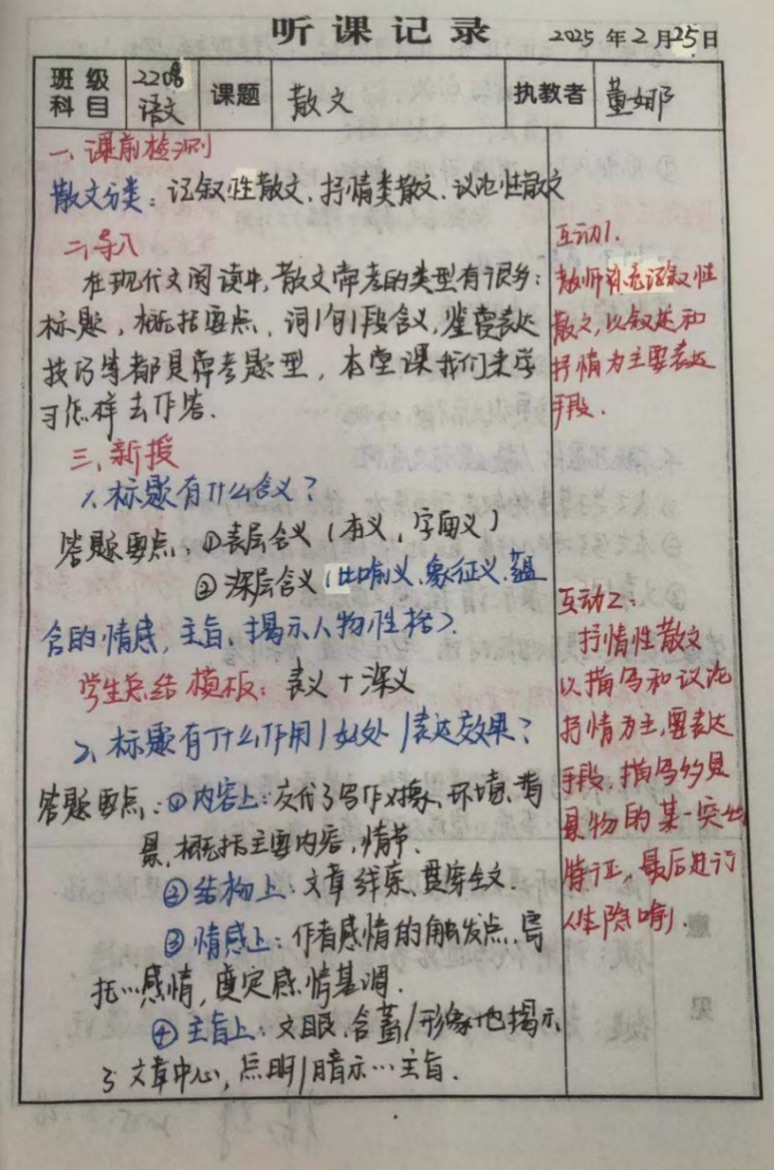 听课记录 2025年2月25日
班级 2208
科目 语文
课题 散文
执教者 董娜
一、课前检测
散文分类：记叙性散文、抒情类散文、议论性散文
二、导入
在现代文阅读中，散文常考的类型有很多：
标题，概括要点，词/句/段含义，鉴赏表达
技巧等都是常考题型，本堂课我们来学
习怎样去作答。
三、新授
1、标题有什么含义？
答题要点：①表层含义（本义，字面义）
②深层含义（比喻义、象征义、蕴
含的情感，主旨、揭示人物性格）
学生总结模板：表义+深义
2、标题有什么作用/好处/表达效果？
答题要点：①内容上：交代了写作对象、环境、背
景，概括主要内容，情节.
②结构上：文章线索、贯穿全文.
③情感上：作者感情的触发点，寄
托…感情，奠定感情基调.
④主旨上：文眼，含蓄/形象地揭示
了文章中心，点明/暗示…主旨.
互动1.
教师补充记叙性
散文，以叙述和
抒情为主要表达
手段.
互动2：
抒情性散文
以描写和议论
抒情为主要表达
手段，描写的是
景物的某一突出
特征，最后进行
人生隐喻.